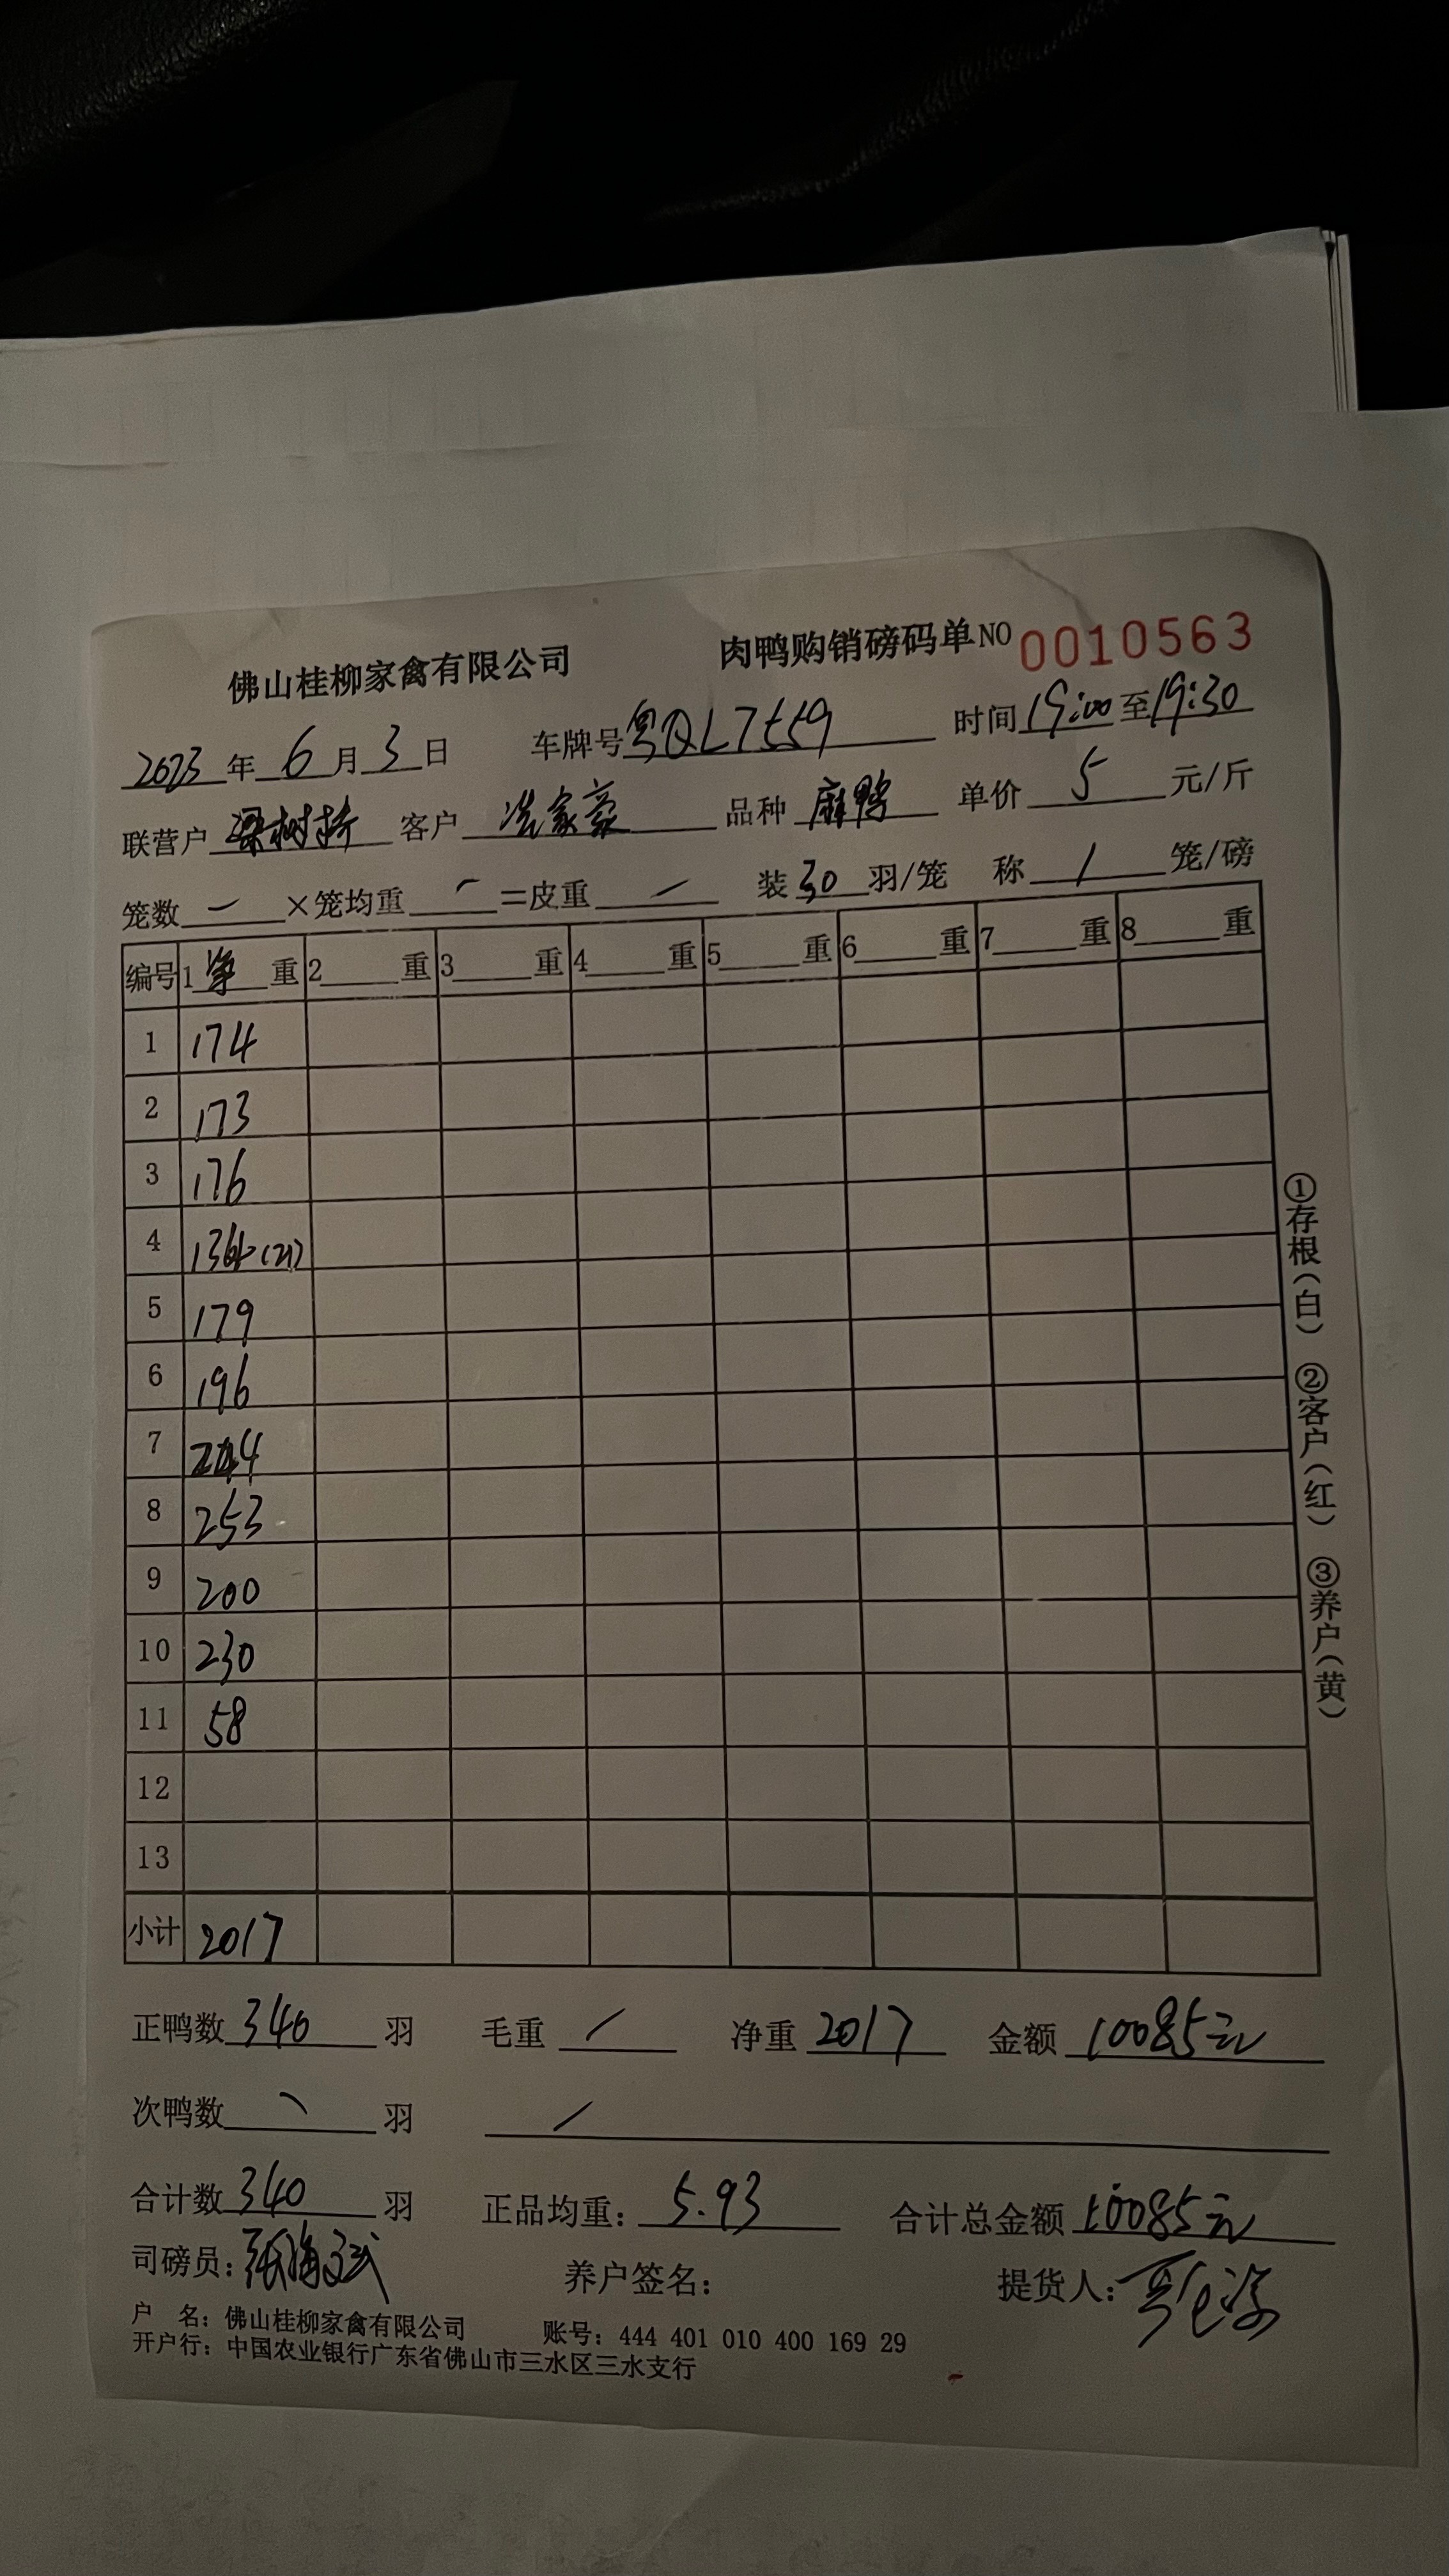 佛山桂柳家禽有限公司 肉鸭购销磅码单NO 0010563
2023年6月3日 车牌号粤QL7559 时间19:00至19:30
联营户梁树 客户冼家豪 品种麻鸭 单价5元/斤
笼数一×笼均重一=皮重一 装30羽/笼 称1笼/磅
编号 1净重 2重 3重 4重 5重 6重 7重 8重
1 174
2 173
3 176
4 (21)
5 179
6 196
7
8 253
9 200
10 230
11 58
12
13
小计 2017
正鸭数340羽 毛重/ 净重2017 金额10085元
次鸭数、羽 /
合计数340羽 正品均重：5.93 合计总金额10085元
司磅员：张海 养户签名： 提货人：
户 名：佛山桂柳家禽有限公司 账号：444 401 010 400 169 29
开户行：中国农业银行广东省佛山市三水区三水支行
①存根（白） ②客户（红） ③养户（黄）